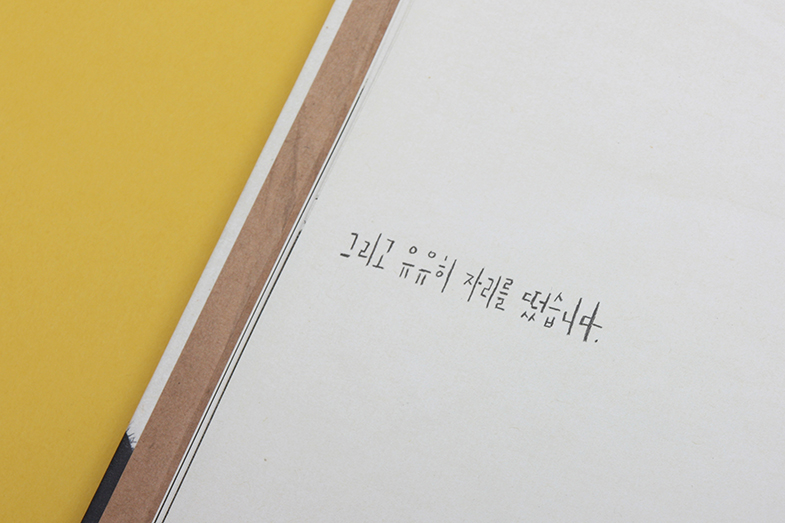 그리고 유유히 자리를 떴습니다.